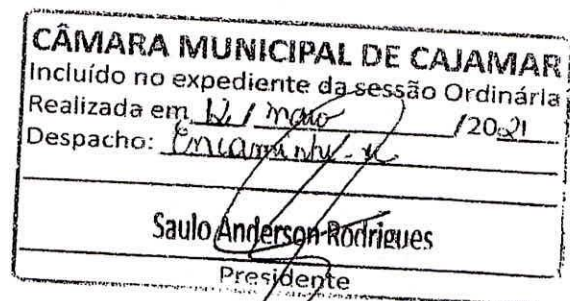 CÂMARA MUNICIPAL DE CAJAMAR
Incluído no expediente da sessão Ordinária
Realizada em 12 / maio /2021
Despacho: Encaminhe-se
Saulo Anderson Rodrigues
Presidente